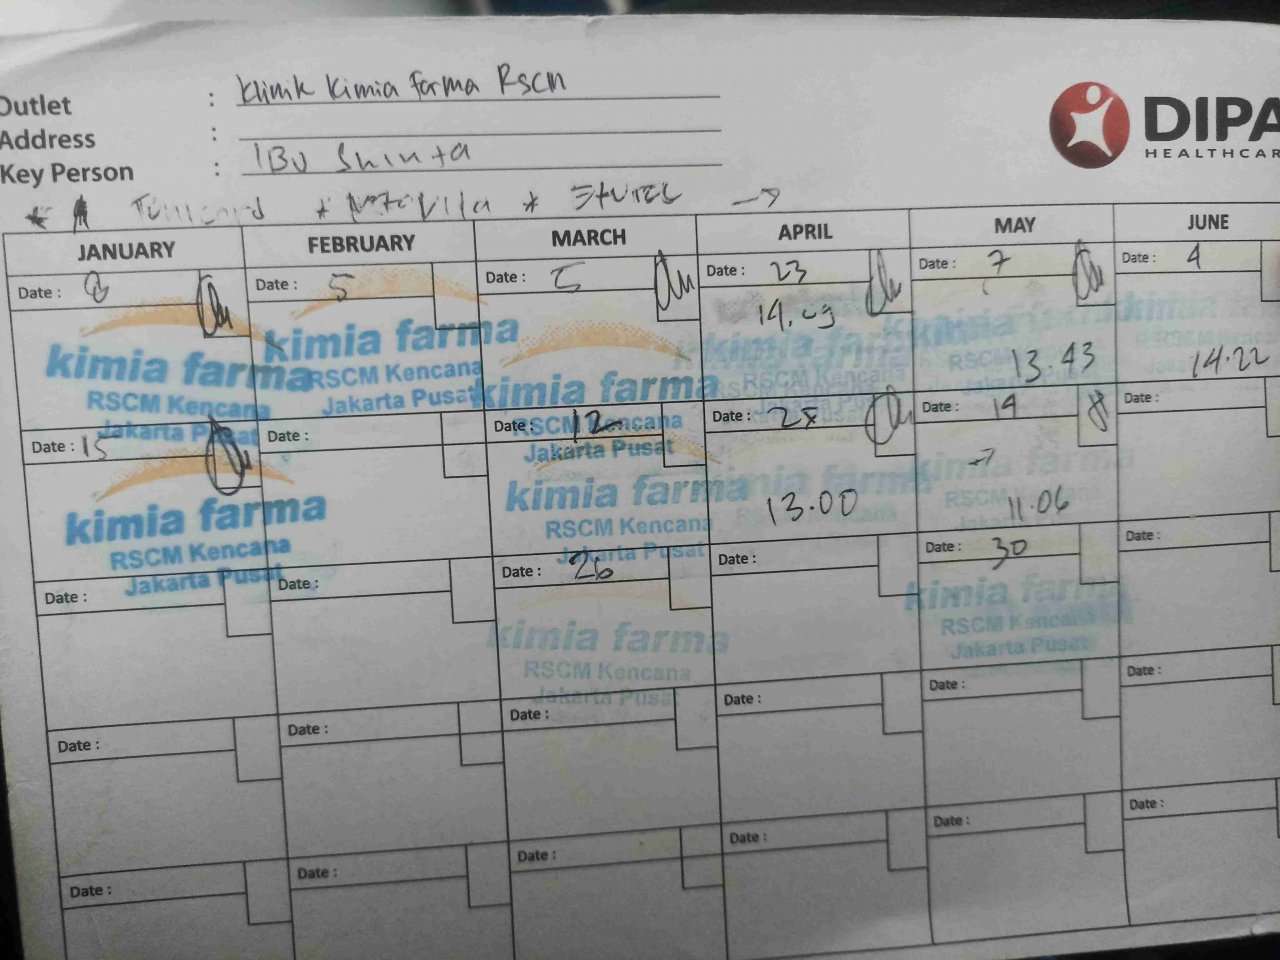 Outlet : Klinik Kimia Farma RSCM
DIPA
HEALTHCAR
Address :
Key Person : IBU Shinta
JANUARY FEBRUARY MARCH APRIL MAY JUNE
Date : 8 Date : 5 Date : 5 Date : 23 Date : 7 Date : 4
14.09 13.43 14.22
kimia farma kimia farma kimia farma
RSCM Kencana RSCM Kencana RSCM Kencana
Jakarta Pusat Jakarta Pusat Jakarta Pusat
Date : 15 Date : Date : 12 Date : 28 Date : 14 Date :
13.00 11.06
kimia farma kimia farma
RSCM Kencana RSCM Kencana
Jakarta Pusat Jakarta Pusat
Date : Date : Date : 26 Date : Date : 30 Date :
kimia farma kimia farma
RSCM Kencana RSCM Kencana
Jakarta Pusat Jakarta Pusat
Date : Date : Date : Date : Date : Date :
Date : Date : Date : Date : Date : Date :